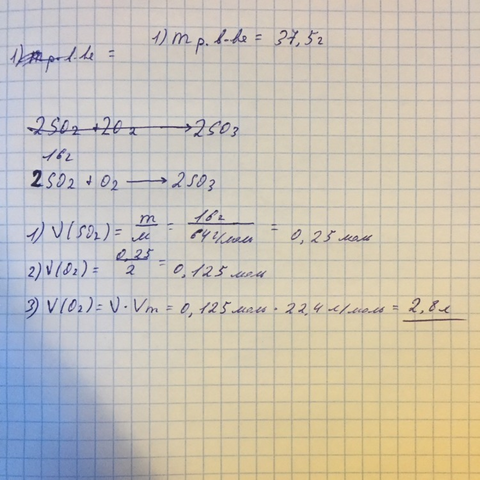 1) m р. в-ве = 37,5г
1) m р. в-ве =
2SO₂ + 2O₂ → 2SO₃
16г
2SO₂ + O₂ → 2SO₃
1) V(SO₂) = m/M = 16г/64г/моль = 0,25 моль
2) V(O₂) = 0,25/2 = 0,125 моль
3) V(O₂) = V · Vm = 0,125 моль · 22,4 л/моль = 2,8 л